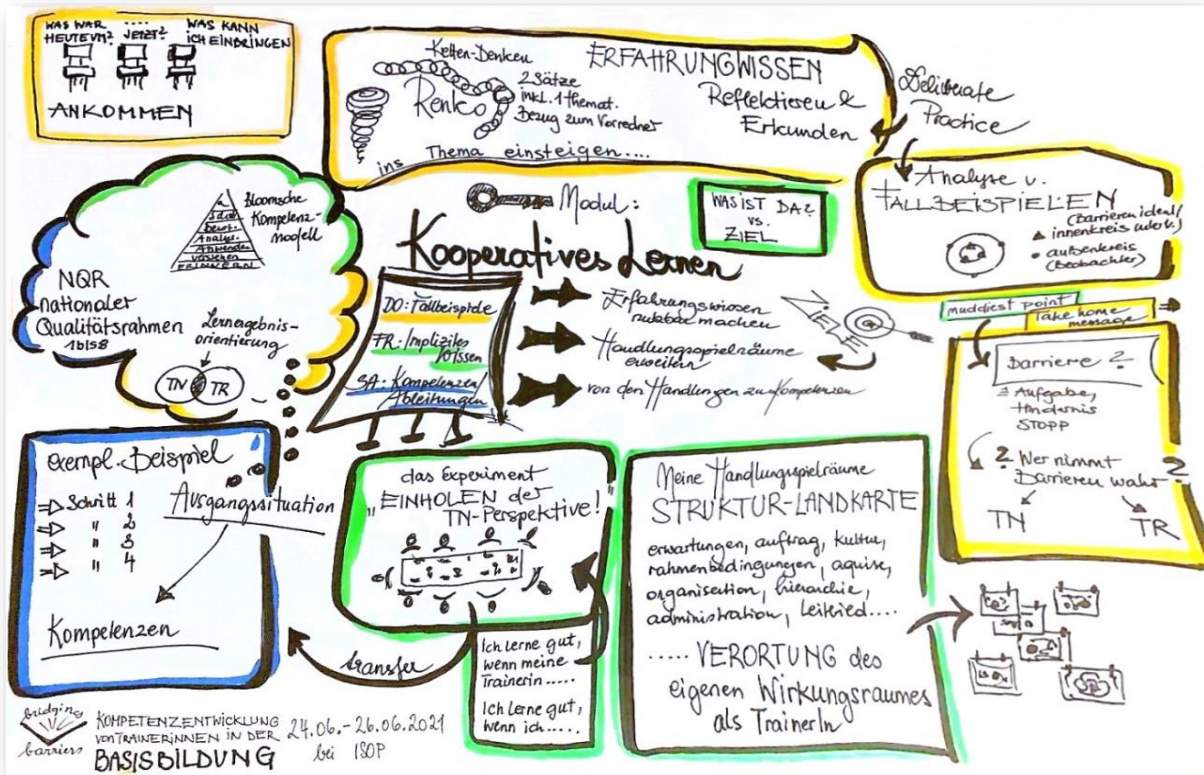 WAS WAR
HEUTE VM?
....
JETZT?
WAS KANN
ICH EINBRINGEN
ANKOMMEN
Ketten-Denken
Renko
2 Sätze
inkl. 1 themat.
Bezug zum Vorredner
ins Thema einsteigen....
ERFAHRUNGWISSEN
Reflektieren &
Erkunden
Deliberate
Practice
Analyse v.
FALLBEISPIELEN
(Barrieren ideal/
innenkreis
außenkreis
(Beobachter)
Bloomsche
Kompetenz-
modell
Analys.
Anwenden
verstehen
ERINNERN
NQR
nationaler
Qualitätsrahmen
1 bis 8
Lernergebnis-
orientierung
TN
TR
Modul:
Kooperatives Lernen
WAS IST DA?
vs.
ZIEL
DO: Fallbeispiele
FR: Implizites
Wissen
SA: Kompetenzen/
Ableitungen
Erfahrungswissen
nutzbar machen
Handlungsspielräume
erweitern
von den Handlungen zu Kompetenzen
ZIELE
muddiest point
Take home
message
Barriere ?
Aufgabe,
Hindernis
STOPP
? Wer nimmt
Barrieren wahr?
TN
TR
exempl. Beispiel
Schritt 1
" 2
" 3
" 4
Ausgangssituation
Kompetenzen
das Experiment
"EINHOLEN der
TN-Perspektive!
transfer
Ich lerne gut,
wenn meine
Trainerin.....
Ich lerne gut,
wenn ich.....
Meine Handlungsspielräume
STRUKTUR-LANDKARTE
erwartungen, auftrag, kultur,
rahmenbedingungen, aquise,
organisation, hierarchie,
administration, leitbied....
..... VERORTUNG des
eigenen Wirkungsraumes
als TrainerIn
bridging
barriers
KOMPETENZENTWICKLUNG
von TRAINERINNEN IN DER
BASISBILDUNG
24.06.-26.06.2021
bei ISOP